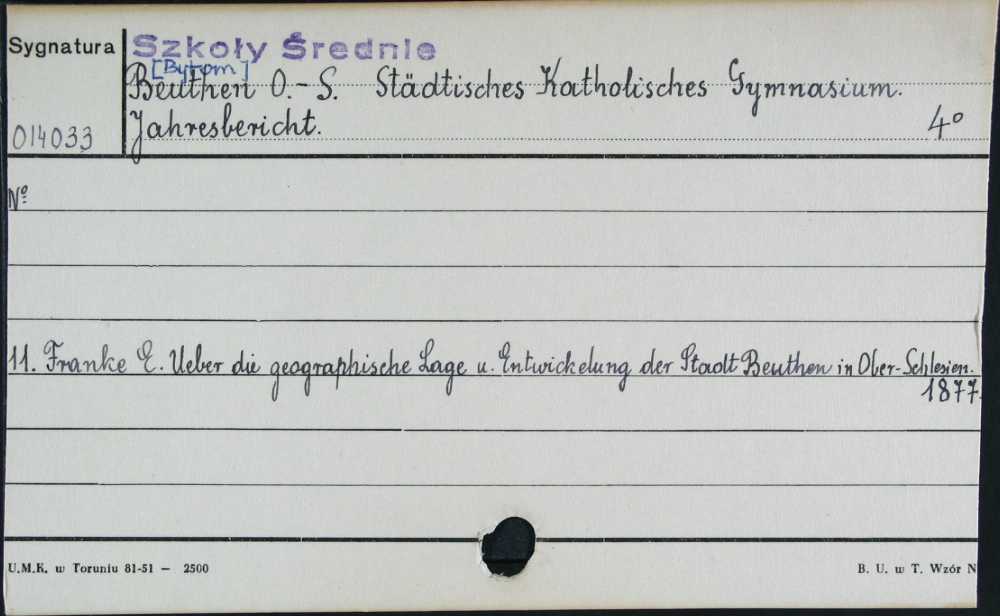 Sygnatura
Szkoły Średnie
[Bytom]
Beuthen O.-S. Städtisches Katholisches Gymnasium.
014033
Jahresbericht. 4°
Nº
11. Franke E. Ueber die geographische Lage u. Entwickelung der Stadt Beuthen in Ober-Schlesien.
1877.
U.M.K. w Toruniu 81-51 — 2500
B. U. w T. Wzór N